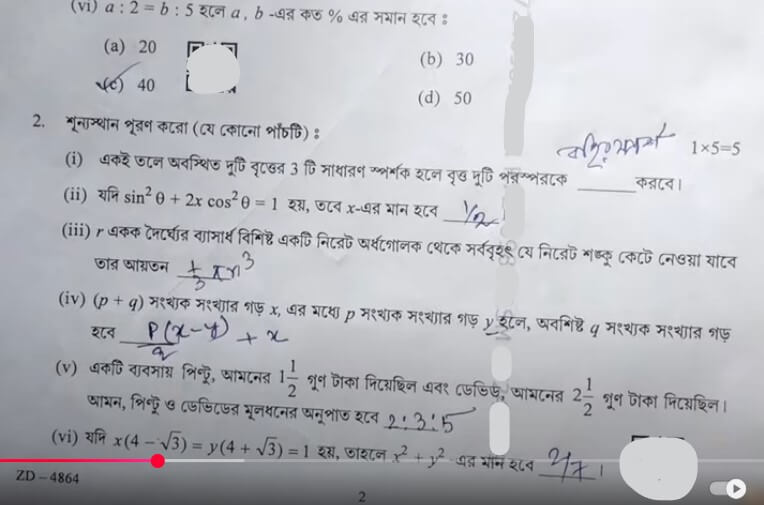 (vi) a : 2 = b : 5 হলে a , b -এর কত % এর সমান হবে :
(a) 20
(b) 30
(c) 40
(d) 50
2. শূন্যস্থান পূরণ করো (যে কোনো পাঁচটি) : 1×5=5
বহিঃস্পর্শ
(i) একই তলে অবস্থিত দুটি বৃত্তের 3 টি সাধারণ স্পর্শক হলে বৃত্ত দুটি পরস্পরকে ______ করবে।
(ii) যদি sin² θ + 2x cos² θ = 1 হয়, তবে x-এর মান হবে 1/2 ।
(iii) r একক দৈর্ঘ্যের ব্যাসার্ধ বিশিষ্ট একটি নিরেট অর্ধগোলক থেকে সর্ববৃহৎ যে নিরেট শঙ্কু কেটে নেওয়া যাবে
তার আয়তন 1/3 πr³
(iv) (p + q) সংখ্যক সংখ্যার গড় x, এর মধ্যে p সংখ্যক সংখ্যার গড় y হলে, অবশিষ্ট q সংখ্যক সংখ্যার গড়
হবে P(x-y)/q + x
(v) একটি ব্যবসায় পিন্টু, আমনের 1 1/2 গুণ টাকা দিয়েছিল এবং ডেভিড, আমনের 2 1/2 গুণ টাকা দিয়েছিল।
আমন, পিন্টু ও ডেভিডের মূলধনের অনুপাত হবে 2:3:5
(vi) যদি x(4 - √3) = y(4 + √3) = 1 হয়, তাহলে x² + y² -এর মান হবে ______ ।
ZD – 4864
2